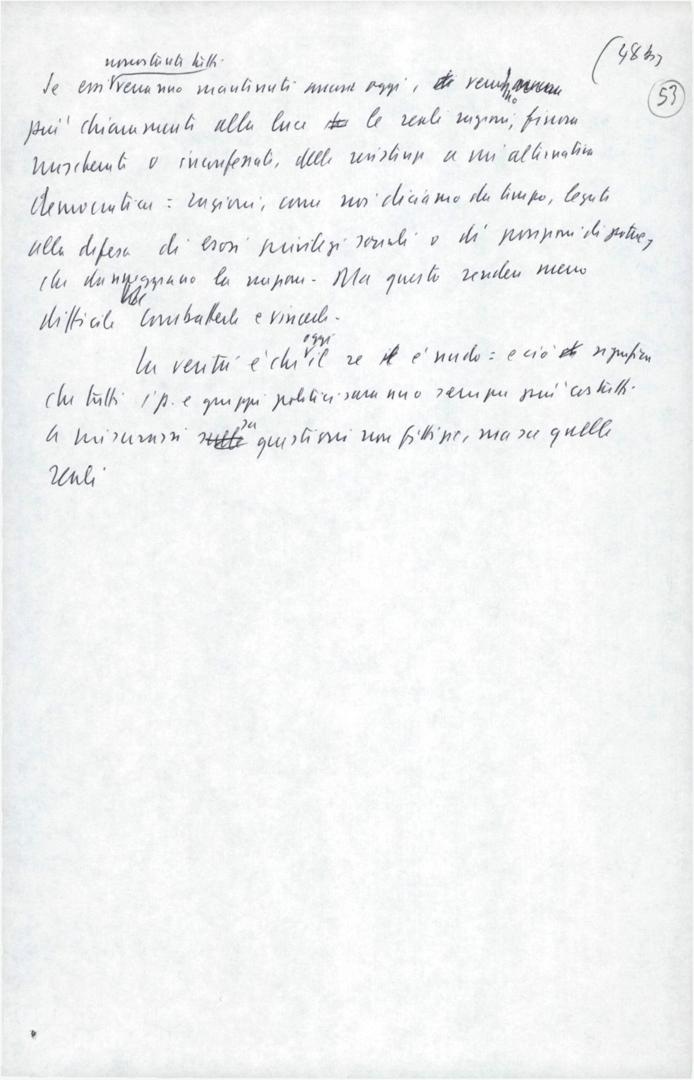 (48 bis
53
nonostante tutto
Se essi verranno mantenuti ancora oggi, verranno
più chiaramente alla luce le reali ragioni, finora
mascherate o inconfessate, delle resistenze a un'alternativa
democratica: ragioni, come noi diciamo da tempo, legate
alla difesa di esosi privilegi sociali o di posizioni di potere,
che danneggiano la nazione. Ma questo renderà meno
difficile combatterle e vincerle.
oggi
La verità è che il re è nudo: e ciò significa
che tutti i p. e gruppi politici saranno sempre più costretti
a misurarsi su questioni non fittizie, ma su quelle
reali